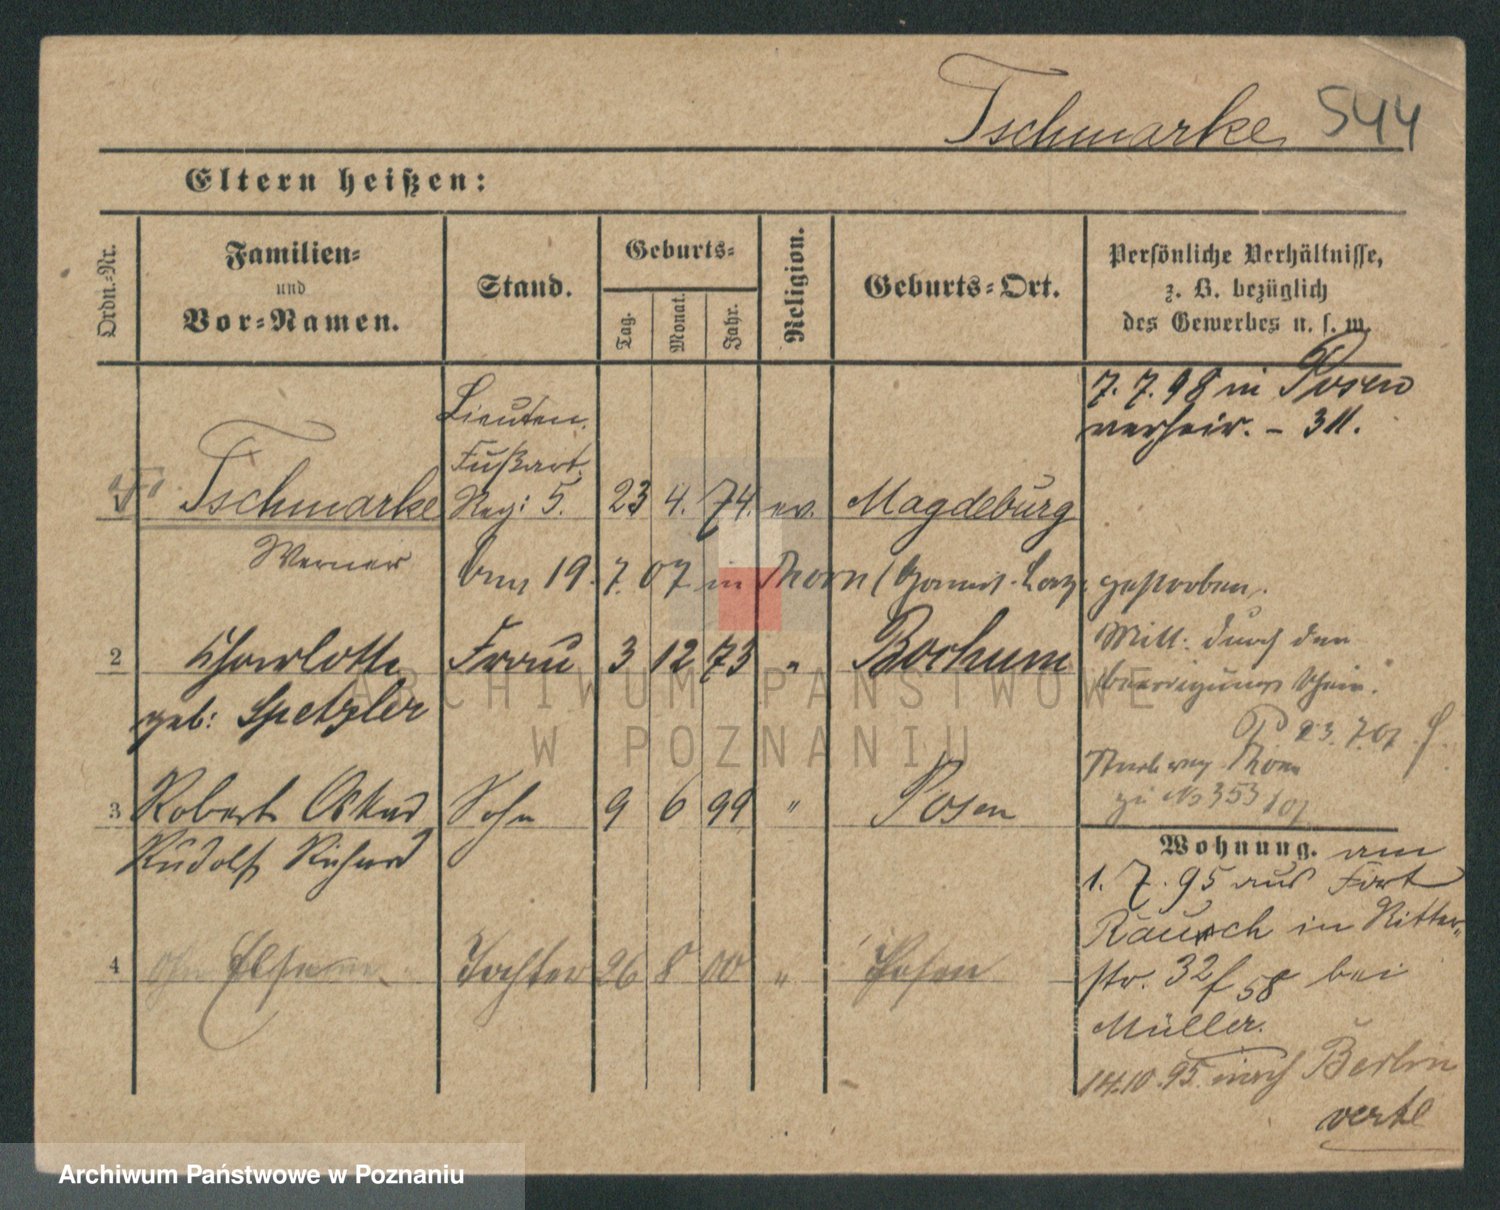 Tschmarke 544
Eltern heißen:
Ordn.-Nr.
Familien-
und
Vor-Namen.
Stand.
Geburts-
Tag.
Monat.
Jahr.
Religion.
Geburts-Ort.
Persönliche Verhältnisse,
z. B. bezüglich
des Gewerbes u. s. w.
7. 7. 98 in Posen
verheir. - 311.
Lieuten.
Fußart.
Tschmarke Reg: 5. 23 4. 74. ev. Magdeburg
Werner
am 19. 7. 07 in Thorn (Garnis. Laz. gestorben.
Mitt. durch den
2 Charlotte Frau 3 12 73 " Bochum
Beerdigungs Schein.
geb: Spetzler
23. 7. 07.
Thorn
zu No 353/07
3 Robert Oskar Sohn 9 6 99 " Posen
Rudolf Richard
Wohnung. am
1. 7. 95 aus Fort
Rauch in Ritter-
str. 32 f 58 bei
Müller.
4 Tochter 26 8 00 " Posen
14.10.95. nach Berlin
verte
ARCHIWUM PAŃSTWOWE
W POZNANIU
Archiwum Państwowe w Poznaniu